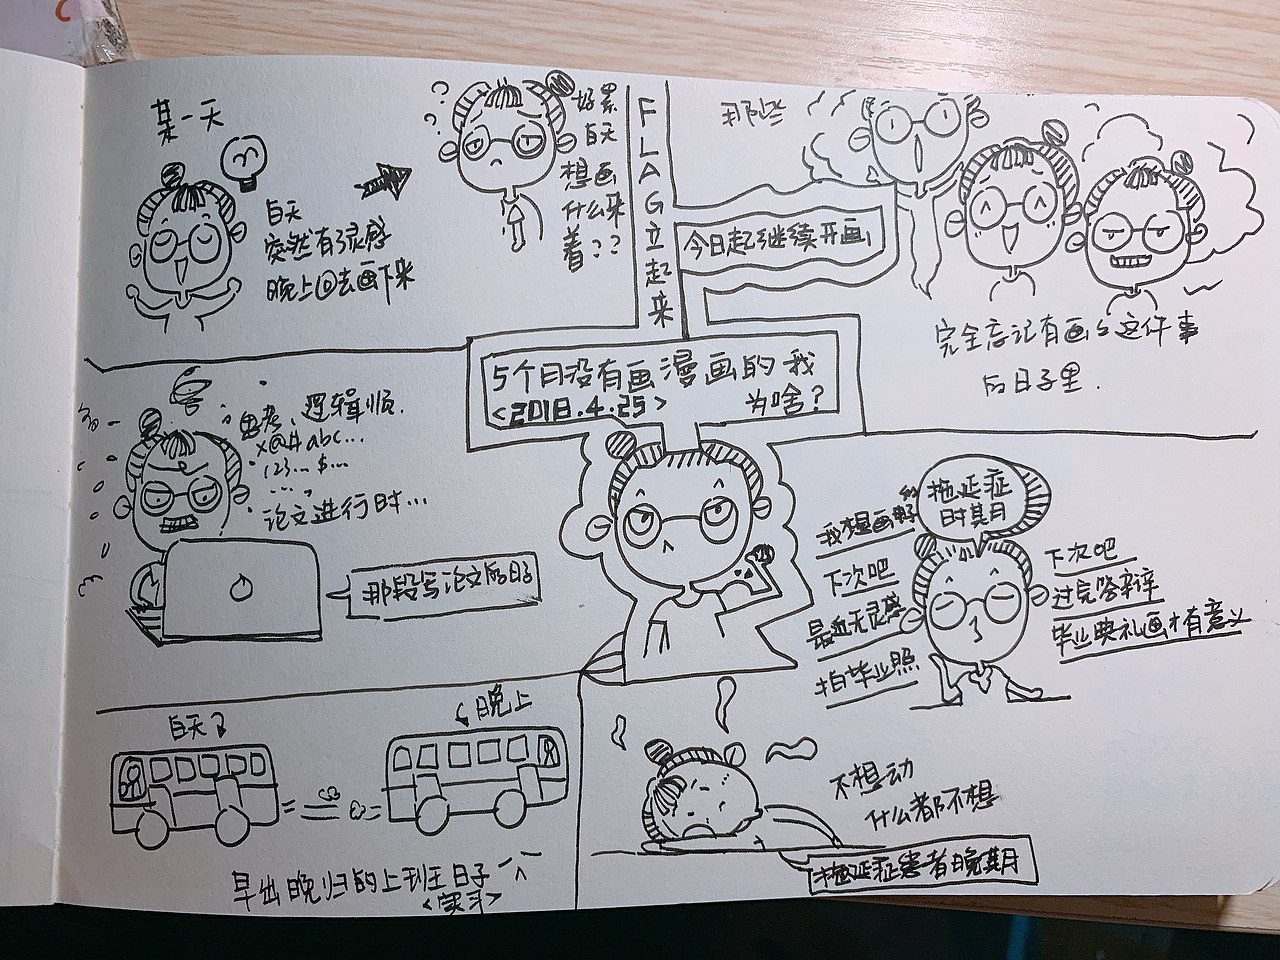 某一天
白天
突然有了灵感
晚上回去画下来
? ? ?
好累
白天
想画
什么来
着??
FLAG立起来
今日起继续开画!
那些
完全忘记有画画这件事
的日子里.
5个月没有画漫画的我
<2018.4.25> 为啥?
思考、逻辑顺.
x@#abc...
123...$...
论文进行时...
那段写论文的日子
拖延症
时期
我想画好的
下次吧
最近无灵感
拍毕业照
下次吧
过完答辩
毕业典礼画才有意义
白天
晚上
早出晚归的上班日子
<实习>
不想动
什么都不想
拖延症患者晚期